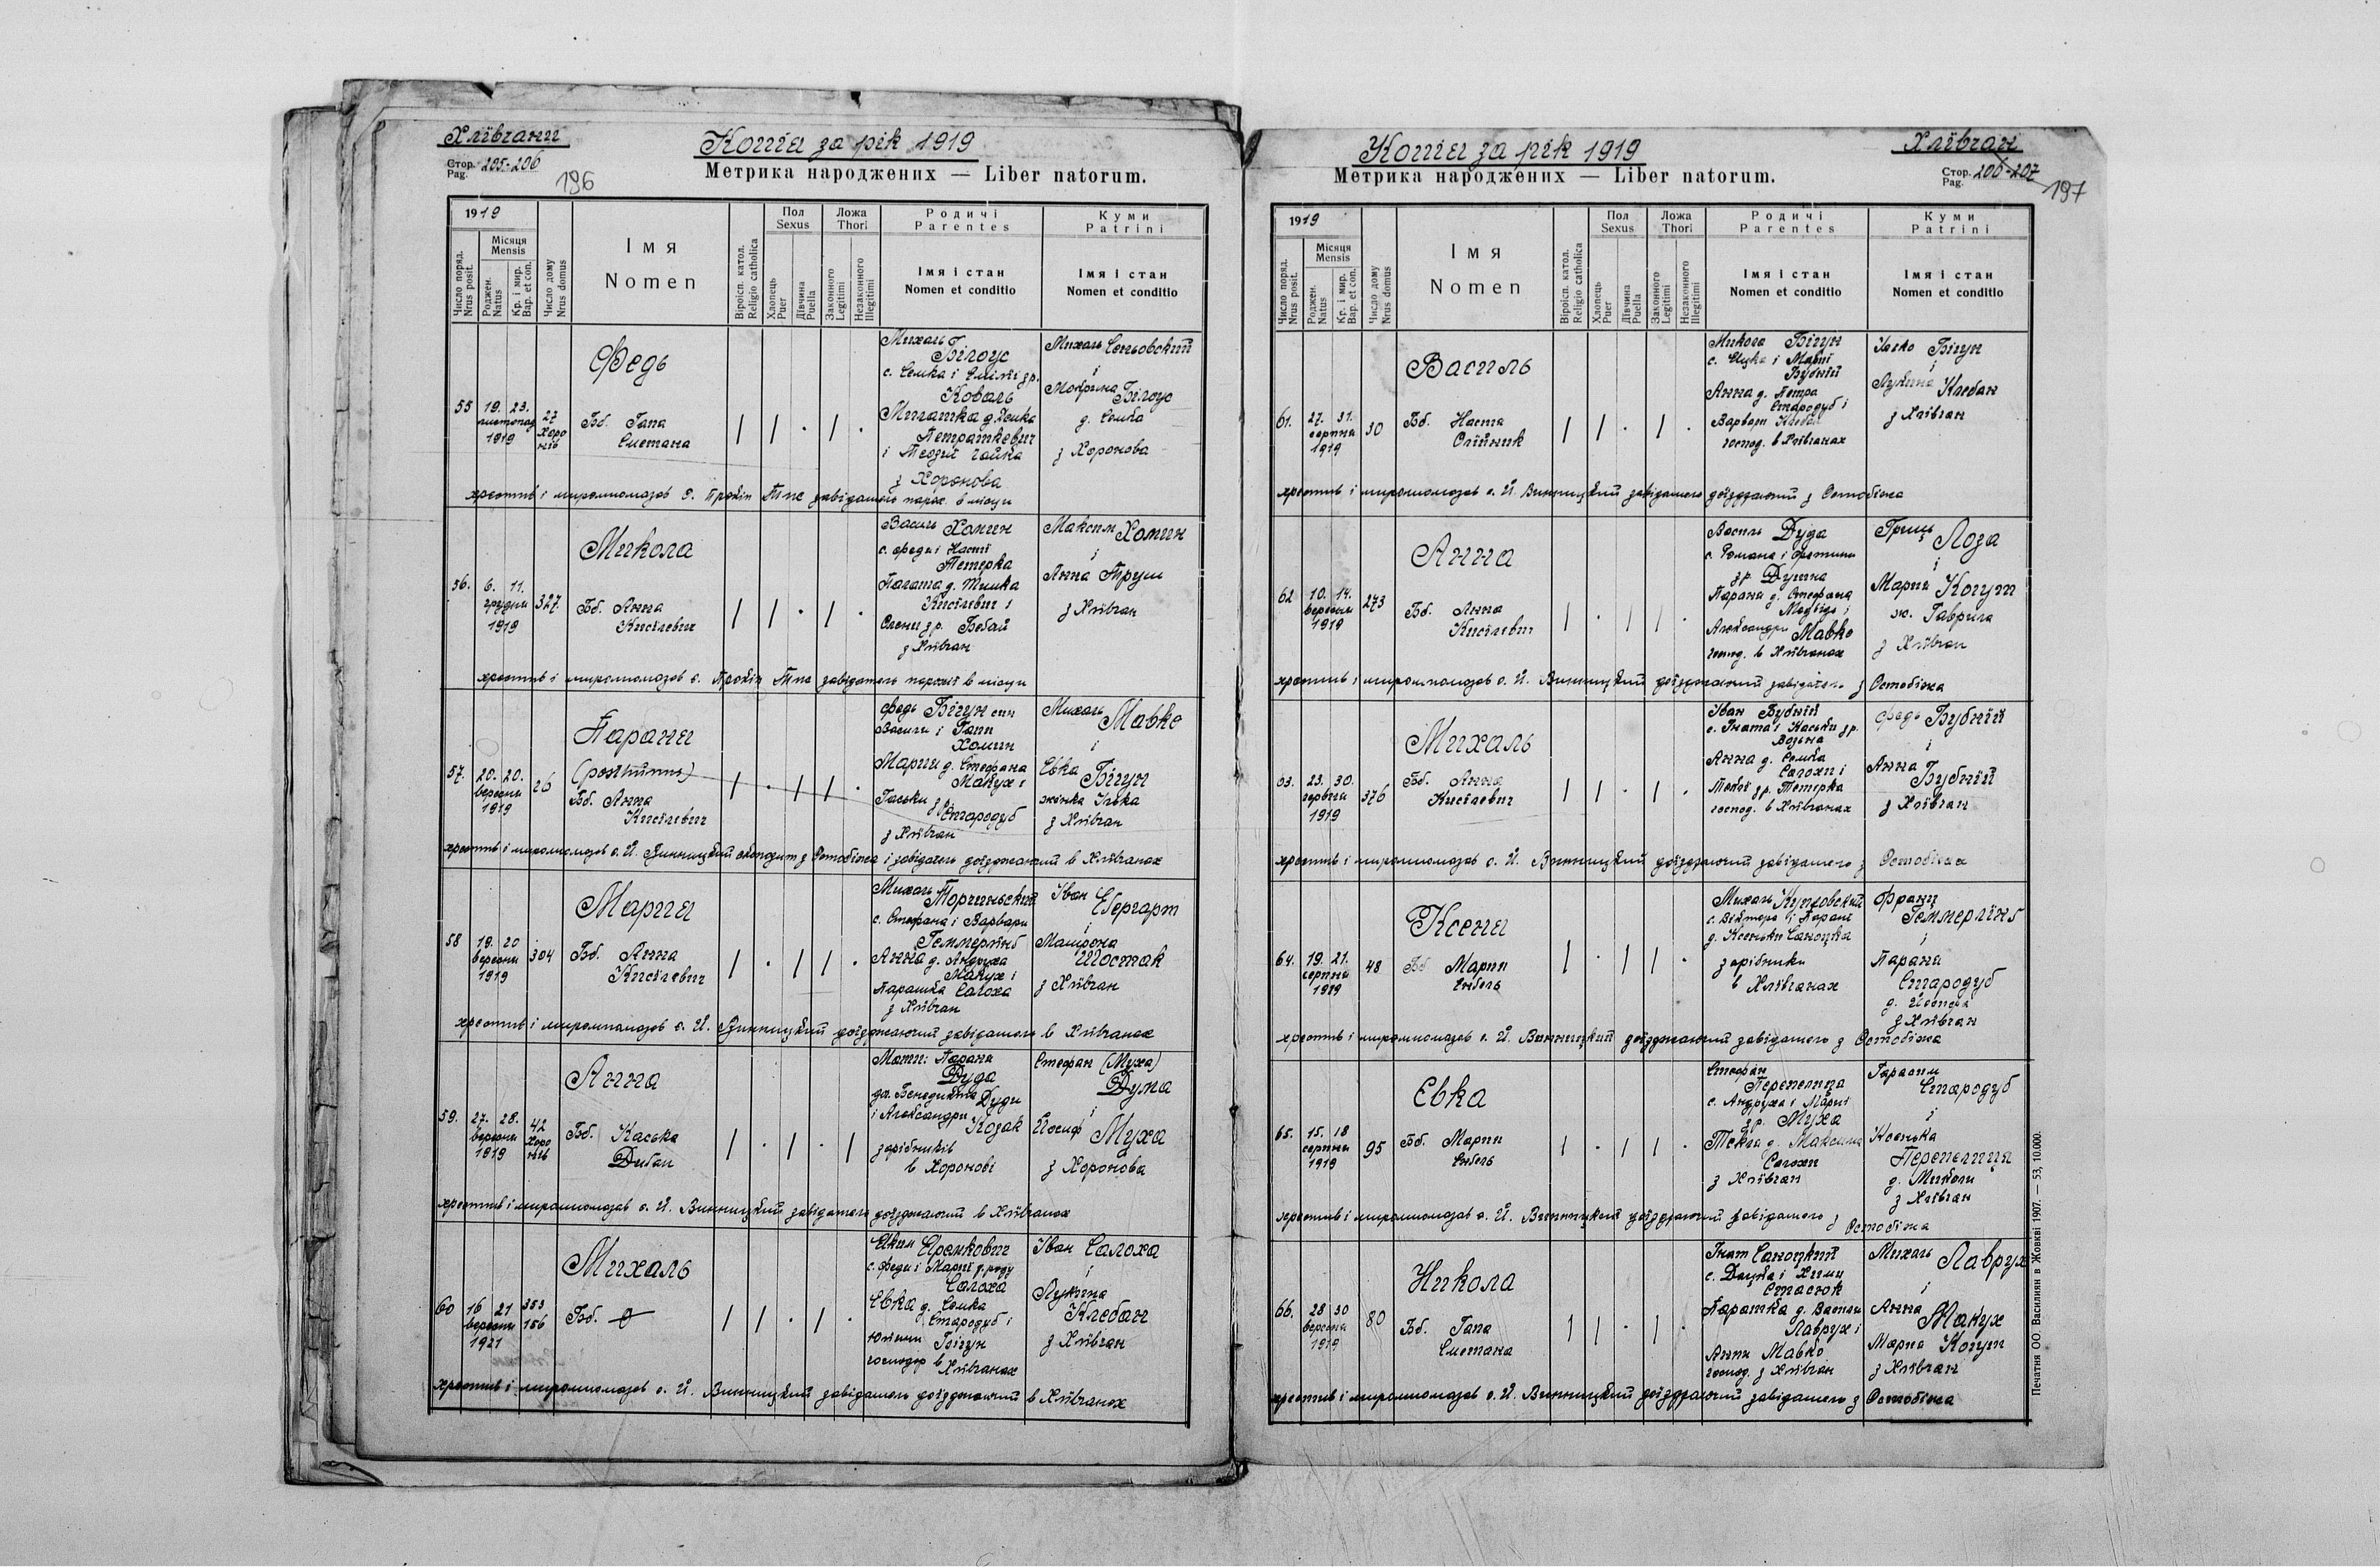 Хлівчани
Копія за рік 1919
Стор. 205-206
Pag.
196
Метрика народжених — Liber natorum.
1919
Число поряд.
Nrus posit.
Місяця
Mensis
Роджен.
Natus
Кр. і мир.
Bap. et con.
Число дому
Nrus domus
Імя
Nomen
Віроісп. катол.
Religio catholica
Пол
Sexus
Хлопець
Puer
Дівчина
Puella
Ложа
Thori
Законного
Legitimi
Незаконного
Illegitimi
Родичі
Parentes
Імя і стан
Nomen et conditio
Куми
Patrini
Імя і стан
Nomen et conditio
55 19. 23.
листопад
1919
27
Хоро
нів
Федь
Бб. Гапа
Сметана
Михаль
Білоус
с. Семка і зр.
Коваль
д.
Петрашкевич
і Чайка
з Хоронова
Михаль
і
Мокрина Білоус
д. Семка
з Хоронова
хрестив і миропомазов о. Прокіп завідатель парох. в місци
56. 6. 11.
грудня
1919
327.
Микола
Бб. Анна
Кисілевич
Василь Хомин
с. Федя і Насті
Тетерка
д. Тимка
Кисілевич і
Олени зр. Бабай
з Хлівчан
Максим Хомин
і
Анна Труш
з Хлівчан
хрестив і миропомазов о. Прокіп завідатель парохії в місци
57. 20. 20.
вересня
1919
26
Параня
(posthumus)
Бб. Анна
Кисілевич
Федь Бігун син
Василя і Гапи
Хомин
Мария д. Стефана
Макух і
Гаськи зр.
Стародуб
з Хлівчан
Михаль Мавко
і
Евка Бігун
жінка Ілька
з Хлівчан
хрестив і миропомазов о. Й. Винницкий з Остобіжа і завідатель доїзджаючий в Хлівчанах
58 19. 20
вересня
1919
304
Мария
Бб. Анна
Кисілевич
Михаль
Торчиньский
с. Стефана і Варвари
Геммерлінг
Анна д. Андруха
Макух і
Парашка Салоха
з Хлівчан
Іван
Ебергарт
і
Машрона
Шостак
з Хлівчан
хрестив і миропомазов о. Й. Винницкий доїзджаючий завідатель в Хлівчанах
59. 27. 28.
вересня
1919
42
Хоро
нів
Анна
Бб. Каська
Дибан
Мати: Параня
Дуда
дч. Бенедикта Дуди
і Александри Козак
зарібників
в Хоронові
Стефан (Муха)
Дума
і
Йосиф Муха
з Хоронова
хрестив і миропомазов о. Й. Винницкий завідатель доїзджаючий в Хлівчанах
60 16 21
вересня
1921
353
156
Михаль
Бб.
с. Федя і Марії з роду
Салоха
Евка д. Семка
Стародуб і
Бігун
господар в Хлівчанах
Іван Салоха
і
Лукина
Клебан
з Хлівчан
хрестив і миропомазов о. Й. Винницкий завідатель доїзджаючий в Хлівчанах
Копія за рік 1919
Хлівчан
Стор. 206-207
Pag.
197
Метрика народжених — Liber natorum.
1919
Число поряд.
Nrus posit.
Місяця
Mensis
Роджен.
Natus
Кр. і мир.
Bap. et con.
Число дому
Nrus domus
Імя
Nomen
Віроісп. катол.
Religio catholica
Пол
Sexus
Хлопець
Puer
Дівчина
Puella
Ложа
Thori
Законного
Legitimi
Незаконного
Illegitimi
Родичі
Parentes
Імя і стан
Nomen et conditio
Куми
Patrini
Імя і стан
Nomen et conditio
61. 27. 31.
серпня
1919
30
Василь
Бб. Настя
Олійник
Микола Бігун
с. Яцка і Марії
Бубній
Анна д. Петра
Стародуб і
Варвари Клебан
господ. в Хлівчанах
Ілько Бігун
і
Лукина Клебан
з Хлівчан
хрестив і миропомазов о. Й. Винницкий завідатель доїзджаючий з Остобіжа
62 10. 14.
вересня
1919
273
Анна
Бб. Анна
Кисілевич
Василь Дуда
с. Романа і
зр. Душна
Параня д. Стефана
Медвідь і
Александри Мавко
господ. в Хлівчанах
Гриць Лоза
і
Мария Когут
ж. Гаврила
з Хлівчан
хрестив і миропомазов о. Й. Винницкий доїзджаючий завідатель з Остобіжа
63. 23. 30.
червня
1919
376
Михаль
Бб. Анна
Кисілевич
Іван Бубній
с. Гната і Каськи зр.
Возьна
Анна д. Семка
Салохи і
зр. Тетерка
господ. в Хлівчанах
Федь Бубній
і
Анна
Бубній
з Хлівчан
хрестив і миропомазов о. Й. Винницкий доїзджаючий завідатель з Остобіжа
64. 19. 21.
серпня
1919
48
Ксеня
Бб Мария
Енбель
Михаль
с. Віктора і Парані
д. Ксеньки Саноцка
зарібники
в Хлівчанах
Франц
Геммерлінг
і
Параня
Стародуб
д. Йосифа
з Хлівчан
хрестив і миропомазов о. Й. Винницкий доїзджаючий завідатель з Остобіжа
65. 15. 18
серпня
1919
95
Евка
Бб. Мария
Енбель
Стефан
Перепелиця
с. Андруха і Марії
зр. Муха
Текля д. Максима
Салохи
з Хлівчан
Гарасим
Стародуб
і
Ксенька
Перепелиця
д. Миколи
з Хлівчан
хрестив і миропомазов о. Й. Винницкий доїзджаючий завідатель з Остобіжа
66. 28 30
вересня
1919
80
Никола
Бб. Гапа
Сметана
Гнат Саноцкий
с. Дацка і Хими
Стасюк
Парашка д. Василя
Лаврух і
Анни Мавко
господ. з Хлівчан
Михаль Лаврух
і
Анна Макух
Мария Когут
з Хлівчан
хрестив і миропомазов о. Й. Винницкий доїзджаючий завідатель з Остобіжа
Печатня ОО. Василиян в Жовкві 1907. — 53, 10.000.